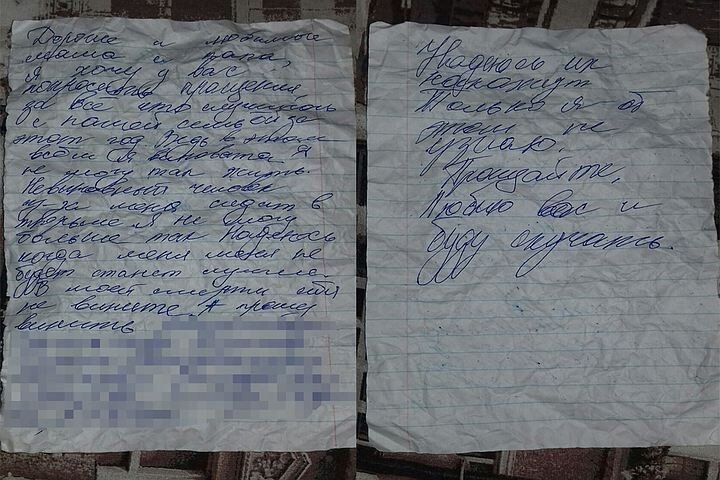 Дорогие и любимые
мама и папа,
я хочу у вас
попросить прощения
за все что случилось
с нашей семьей за
этот год. Ведь в этом
всём я виновата. Я
не могу так жить.
Невиновный человек
из-за меня сидит в
тюрьме я не могу
больше так. Надеюсь
когда меня не
будет станет лучше.
В моей смерти себя
не вините. А прошу
винить
Надеюсь их
накажут
Только я об
этом не
узнаю.
Прощайте,
Люблю вас и
буду скучать.